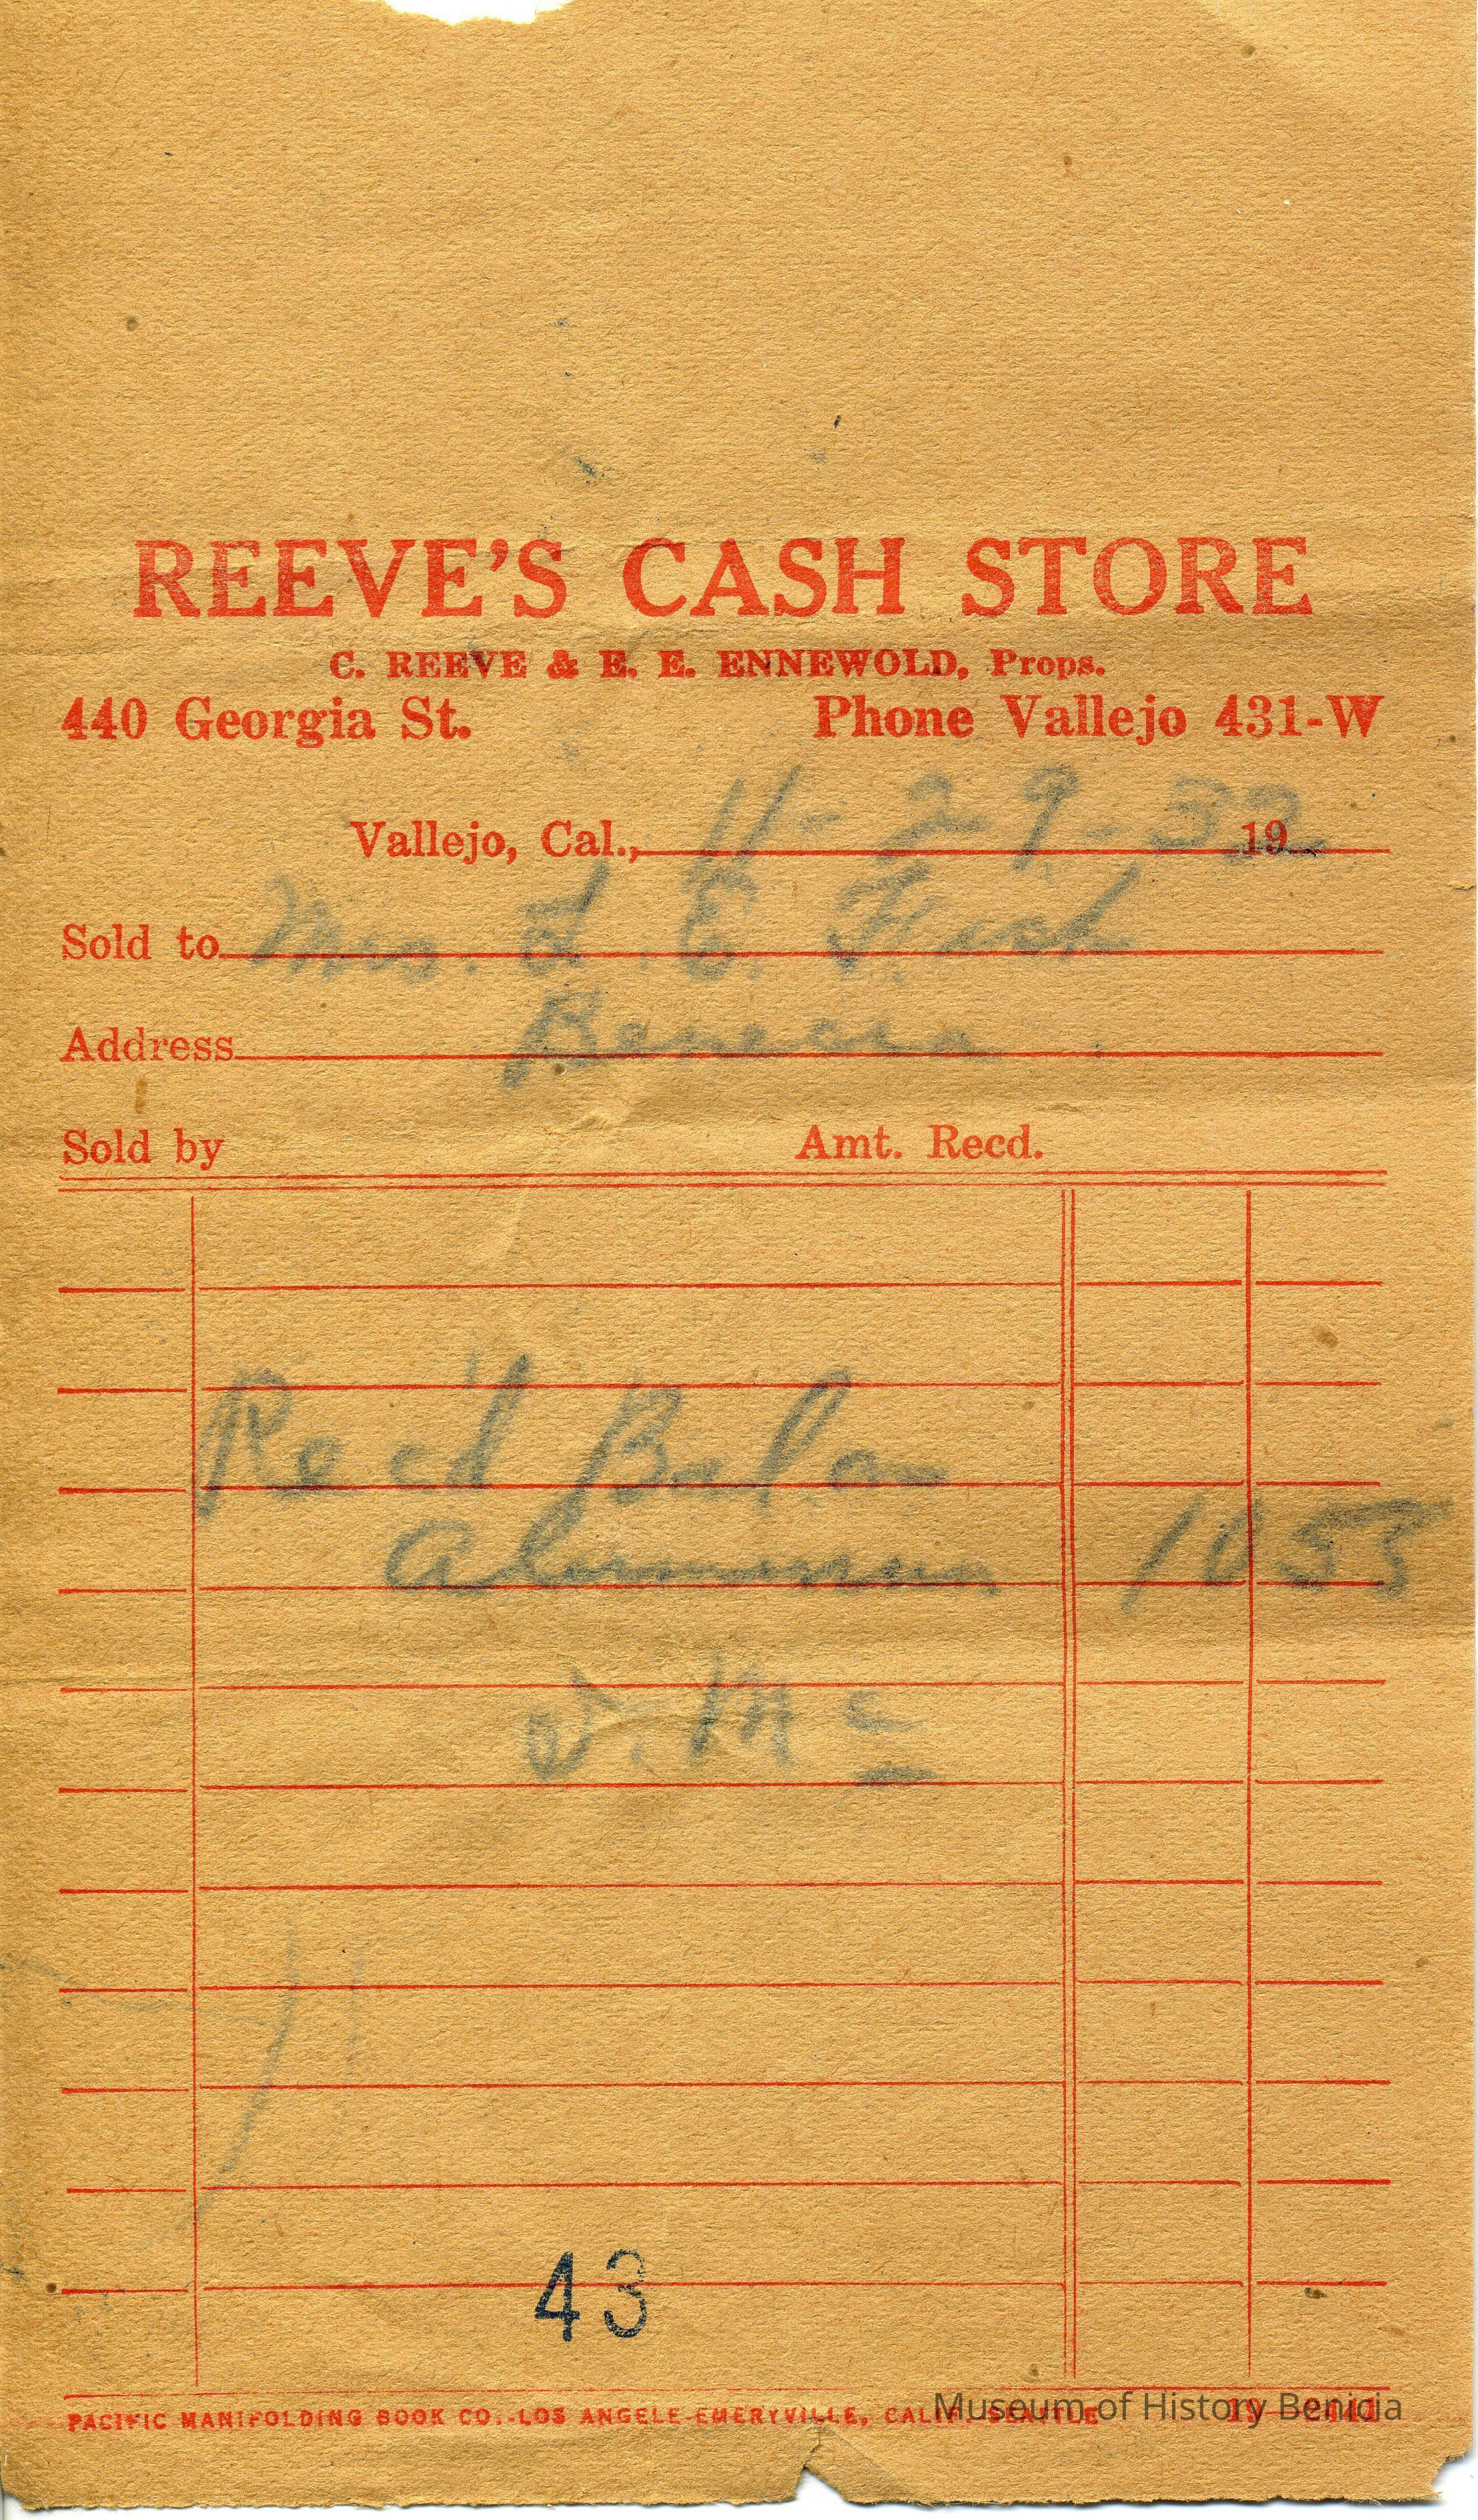 REEVE'S CASH STORE
C. REEVE & E. E. ENNEWOLD, Props.
440 Georgia St. Phone Vallejo 431-W
Vallejo, Cal., 11-29-32 19
Sold to Mrs. L. E. Fish
Address Benecia
Sold by Amt. Recd.
Rec'd Bal. on
Aluminum 10 53
J. Mc
43
PACIFIC MANIFOLDING BOOK CO.-LOS ANGELE-EMERYVILLE, CALIF. SEATTLE
Museum of History Benicia